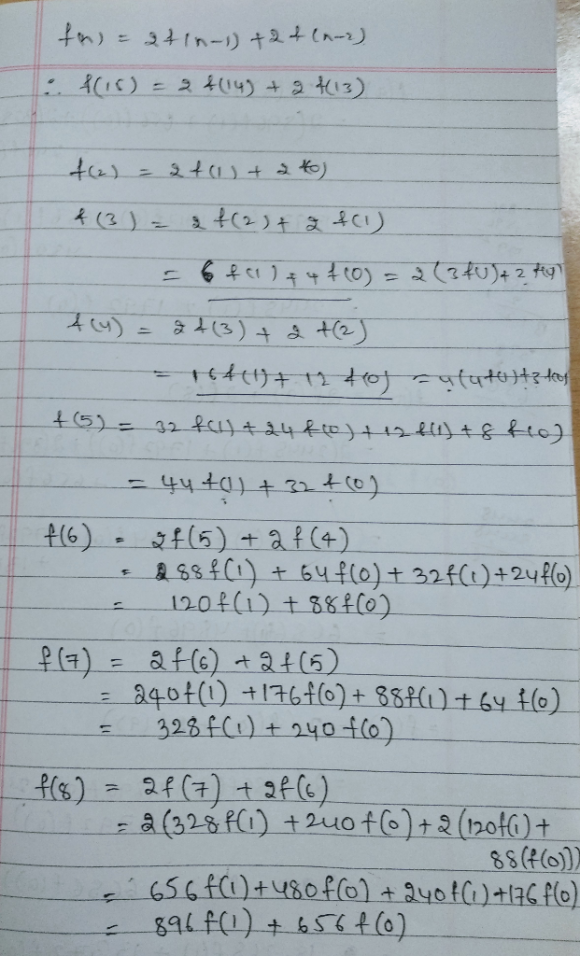 f(n) = 2f(n-1) + 2f(n-2)
∴ f(15) = 2f(14) + 2f(13)
f(2) = 2f(1) + 2f(0)
f(3) = 2f(2) + 2f(1)
= 6f(1) + 4f(0) = 2(3f(1)+2f(0))
f(4) = 2f(3) + 2f(2)
= 16f(1) + 12f(0) = 4(4f(1)+3f(0))
f(5) = 32f(1) + 24f(0) + 12f(1) + 8f(0)
= 44f(1) + 32f(0)
f(6) = 2f(5) + 2f(4)
= 88f(1) + 64f(0) + 32f(1) + 24f(0)
= 120f(1) + 88f(0)
f(7) = 2f(6) + 2f(5)
= 240f(1) + 176f(0) + 88f(1) + 64f(0)
= 328f(1) + 240f(0)
f(8) = 2f(7) + 2f(6)
= 2(328f(1) + 240f(0) + 2(120f(1) +
88(f(0)))
= 656f(1) + 480f(0) + 240f(1) + 176f(0)
= 896f(1) + 656f(0)